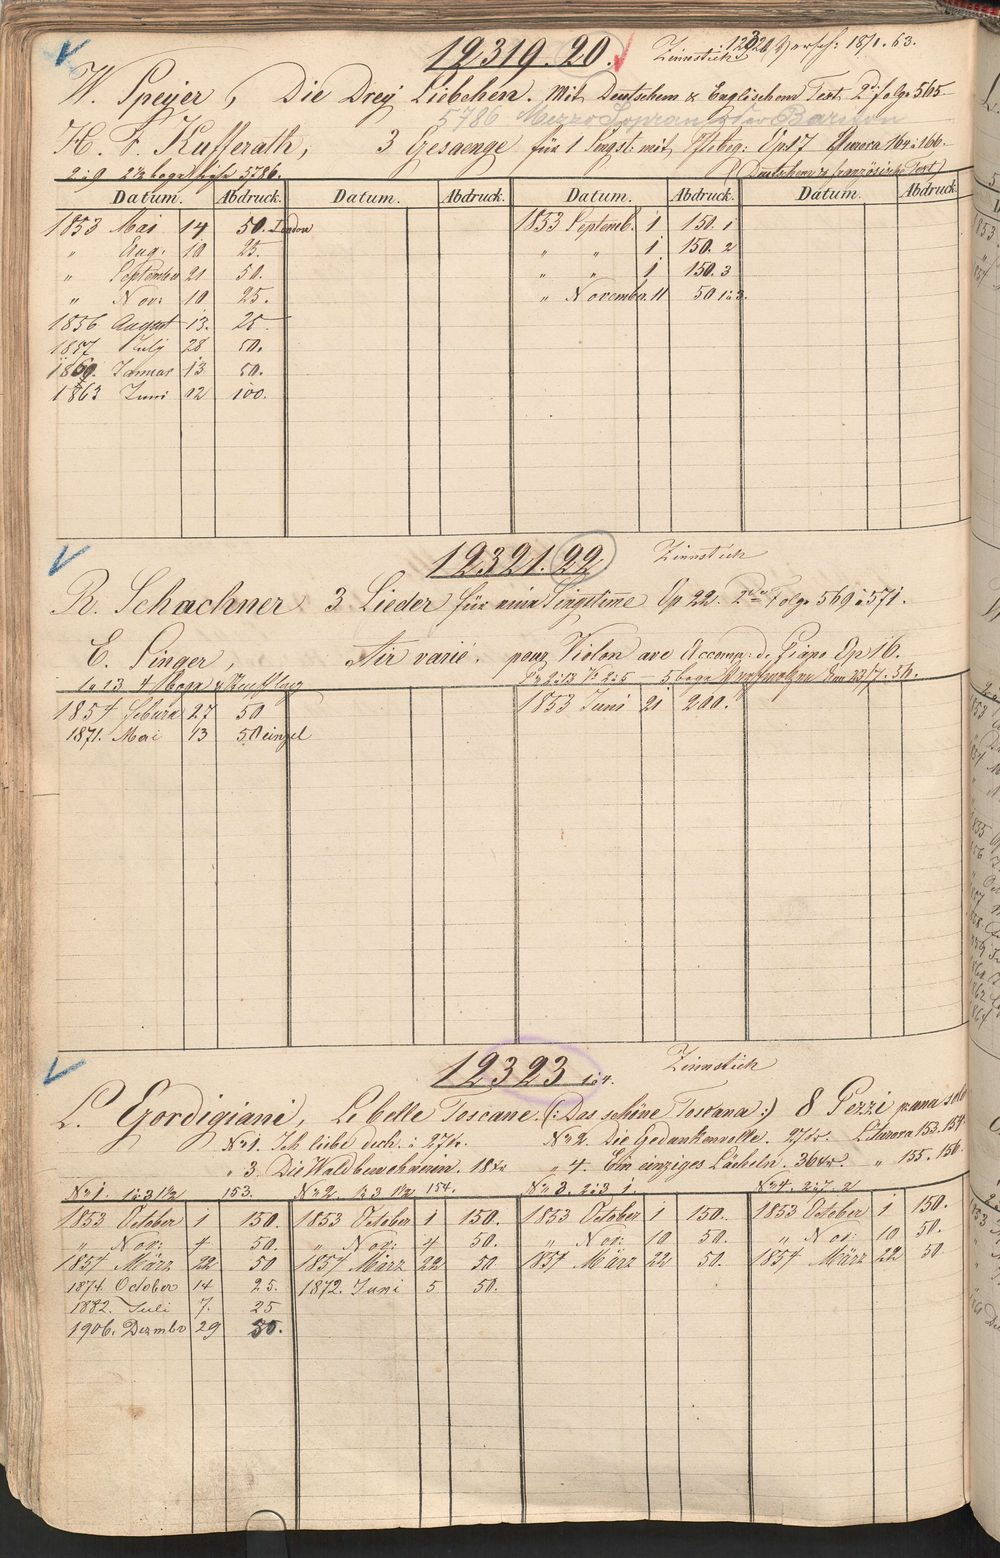 12319.20. Zinnstich 12320
W. Speyer, Die Drey Liebchen. Mit Deutschem & Englischem Text. 2te Folge 565
5786 Mezzo Sopran oder Bariton
H. F. Kufferath, 3 Gesaenge für 1 Singst: mit Pftebeg: Op 17 Aurora 164 à 166.
(Deutschem & französische Text)
Datum. Abdruck. Datum. Abdruck. Datum. Abdruck. Datum. Abdruck.
1853 Mai 14 50. London 1853 Septemb. 1 150. 1
" Aug: 10 25. " " 1 150. 2
" September 21 50. " " 1 150. 3
" Nov: 10 25. " November. 11 50 1à3.
1856 August 13. 25
1857 July 28 50.
1860. Januar 13 50.
1863 Juni 12 100.
12321.22 Zinnstich
R. Schachner 3 Lieder für eine Singstime Op 22. 2te Folge 569 à 571.
E. Singer, Air varié. pour Violon ave Accomp: de Piano Op 16.
1854 27 50 1853 Juni 21 200.
1871. Mai 13 50 einzel
12323 1à4. Zinnstich
L. Gordigiani, Le belle Toscane. (: Das schöne Toscana :) 8 Pezzi p: una solo
No 1. Ich liebe dich. à 27kr. No 2. Die Gedankenvolle. 27kr. L'Aurora 153. 154.
" 3. Die Waldbewohnerin. 18kr " 4. Ein einziges Lächeln. 36kr. " 155. 156.
No 1. 1à3 1½ 153. No 2. 1à3 1½ 154. No 3. 2à3 1. No 4. 2à7. 2
1853 October 1 150. 1853 October 1 150. 1853 October 1 150. 1853 October 1 150.
" Nov: 4 50. " Nov: 4 50. " Nov: 10 50. " Nov: 10 50.
1854 März 22 50 1854 März 22 50 1854 März 22 50. 1854 März 22 50
1874. October 14 25. 1872. Juni 5 50.
1882. Juli 7. 25
1906. Dezmbr 29 50.